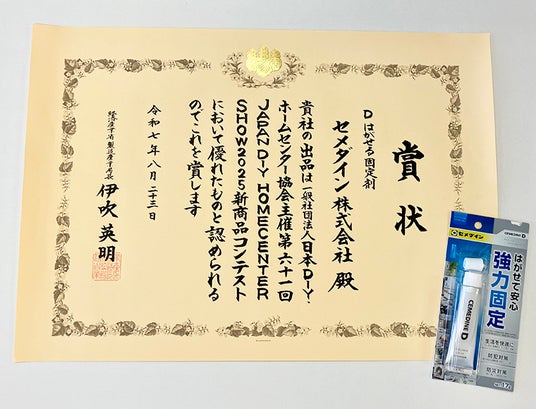 賞状
D はがせる固定剤
セメダイン株式会社 殿
貴社の出品は一般社団法人日本DIY・
ホームセンター協会主催第六十一回
JAPAN DIY HOMECENTER
SHOW2025新商品コンテスト
において優れたものと認められる
のでこれを賞します
令和七年八月二十三日
経済産業省 製造産業局長 伊吹 英明
セメダイン
CEMEDINE D
はがせて安心
強力固定
CEMEDINE D
生活を快適に
防犯対策
防災対策